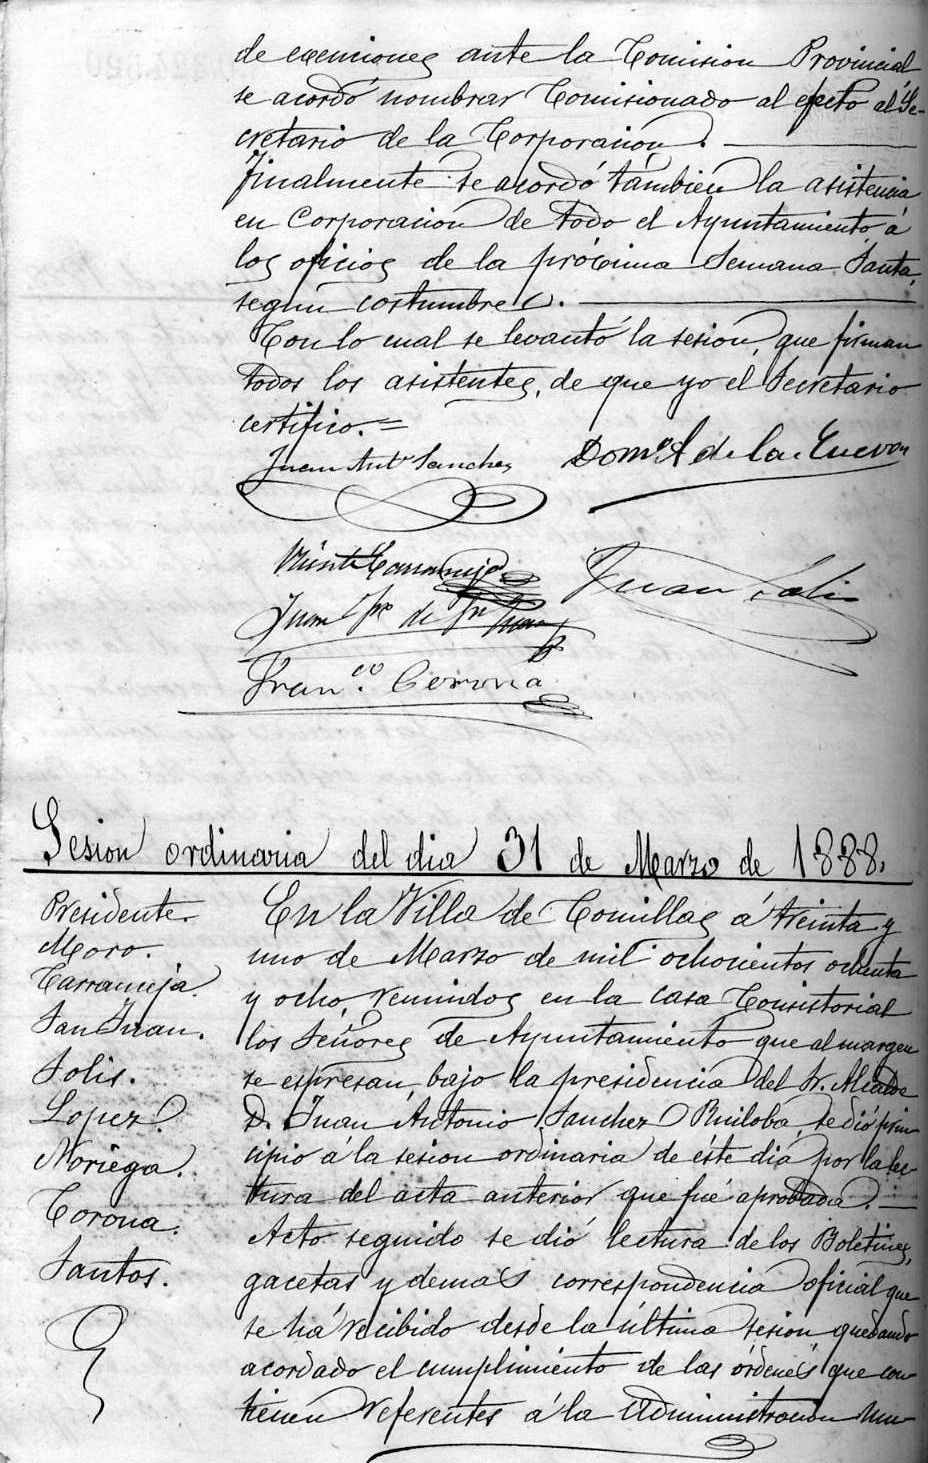 de exenciones ante la Comision Provincial,
se acordó nombrar Comisionado al efecto al Se-
cretario de la Corporacion.
Finalmente se acordó tambien la asistencia
en Corporacion de todo el Ayuntamiento á
los oficios de la próxima Semana Santa,
segun costumbre.
Con lo cual se levantó la sesion, que firman
todos los asistentes, de que yo el Secretario
certifico.=
Juan Antº Sanchez
Domº A de la Cueva
Vicente Carrameja
Juan Solis
Juan de Sn Juan
Franco. Corona
Sesion ordinaria del dia 31 de Marzo de 1888.
Presidente.
Moro.
Carrameja.
San Juan.
Solis.
Lopez.
Noriega.
Corona.
Santos.
En la Villa de Comillas á treinta y
uno de Marzo de mil ochocientos ochenta
y ocho, reunidos en la casa Consistorial
los Señores de Ayuntamiento que al margen
se espresan, bajo la presidencia del Sr. Alcalde
D. Juan Antonio Sanchez Ruiloba, se dió prin
cipio á la sesion ordinaria de éste dia por la lec-
tura del acta anterior que fué aprobada.
Acto seguido se dió lectura de los Boletines,
gacetas y demas correspondencia oficial que
se há recibido desde la última sesion quedando
acordado el cumplimiento de las órdenes que con
tienen referentes á la Administracion Mu-